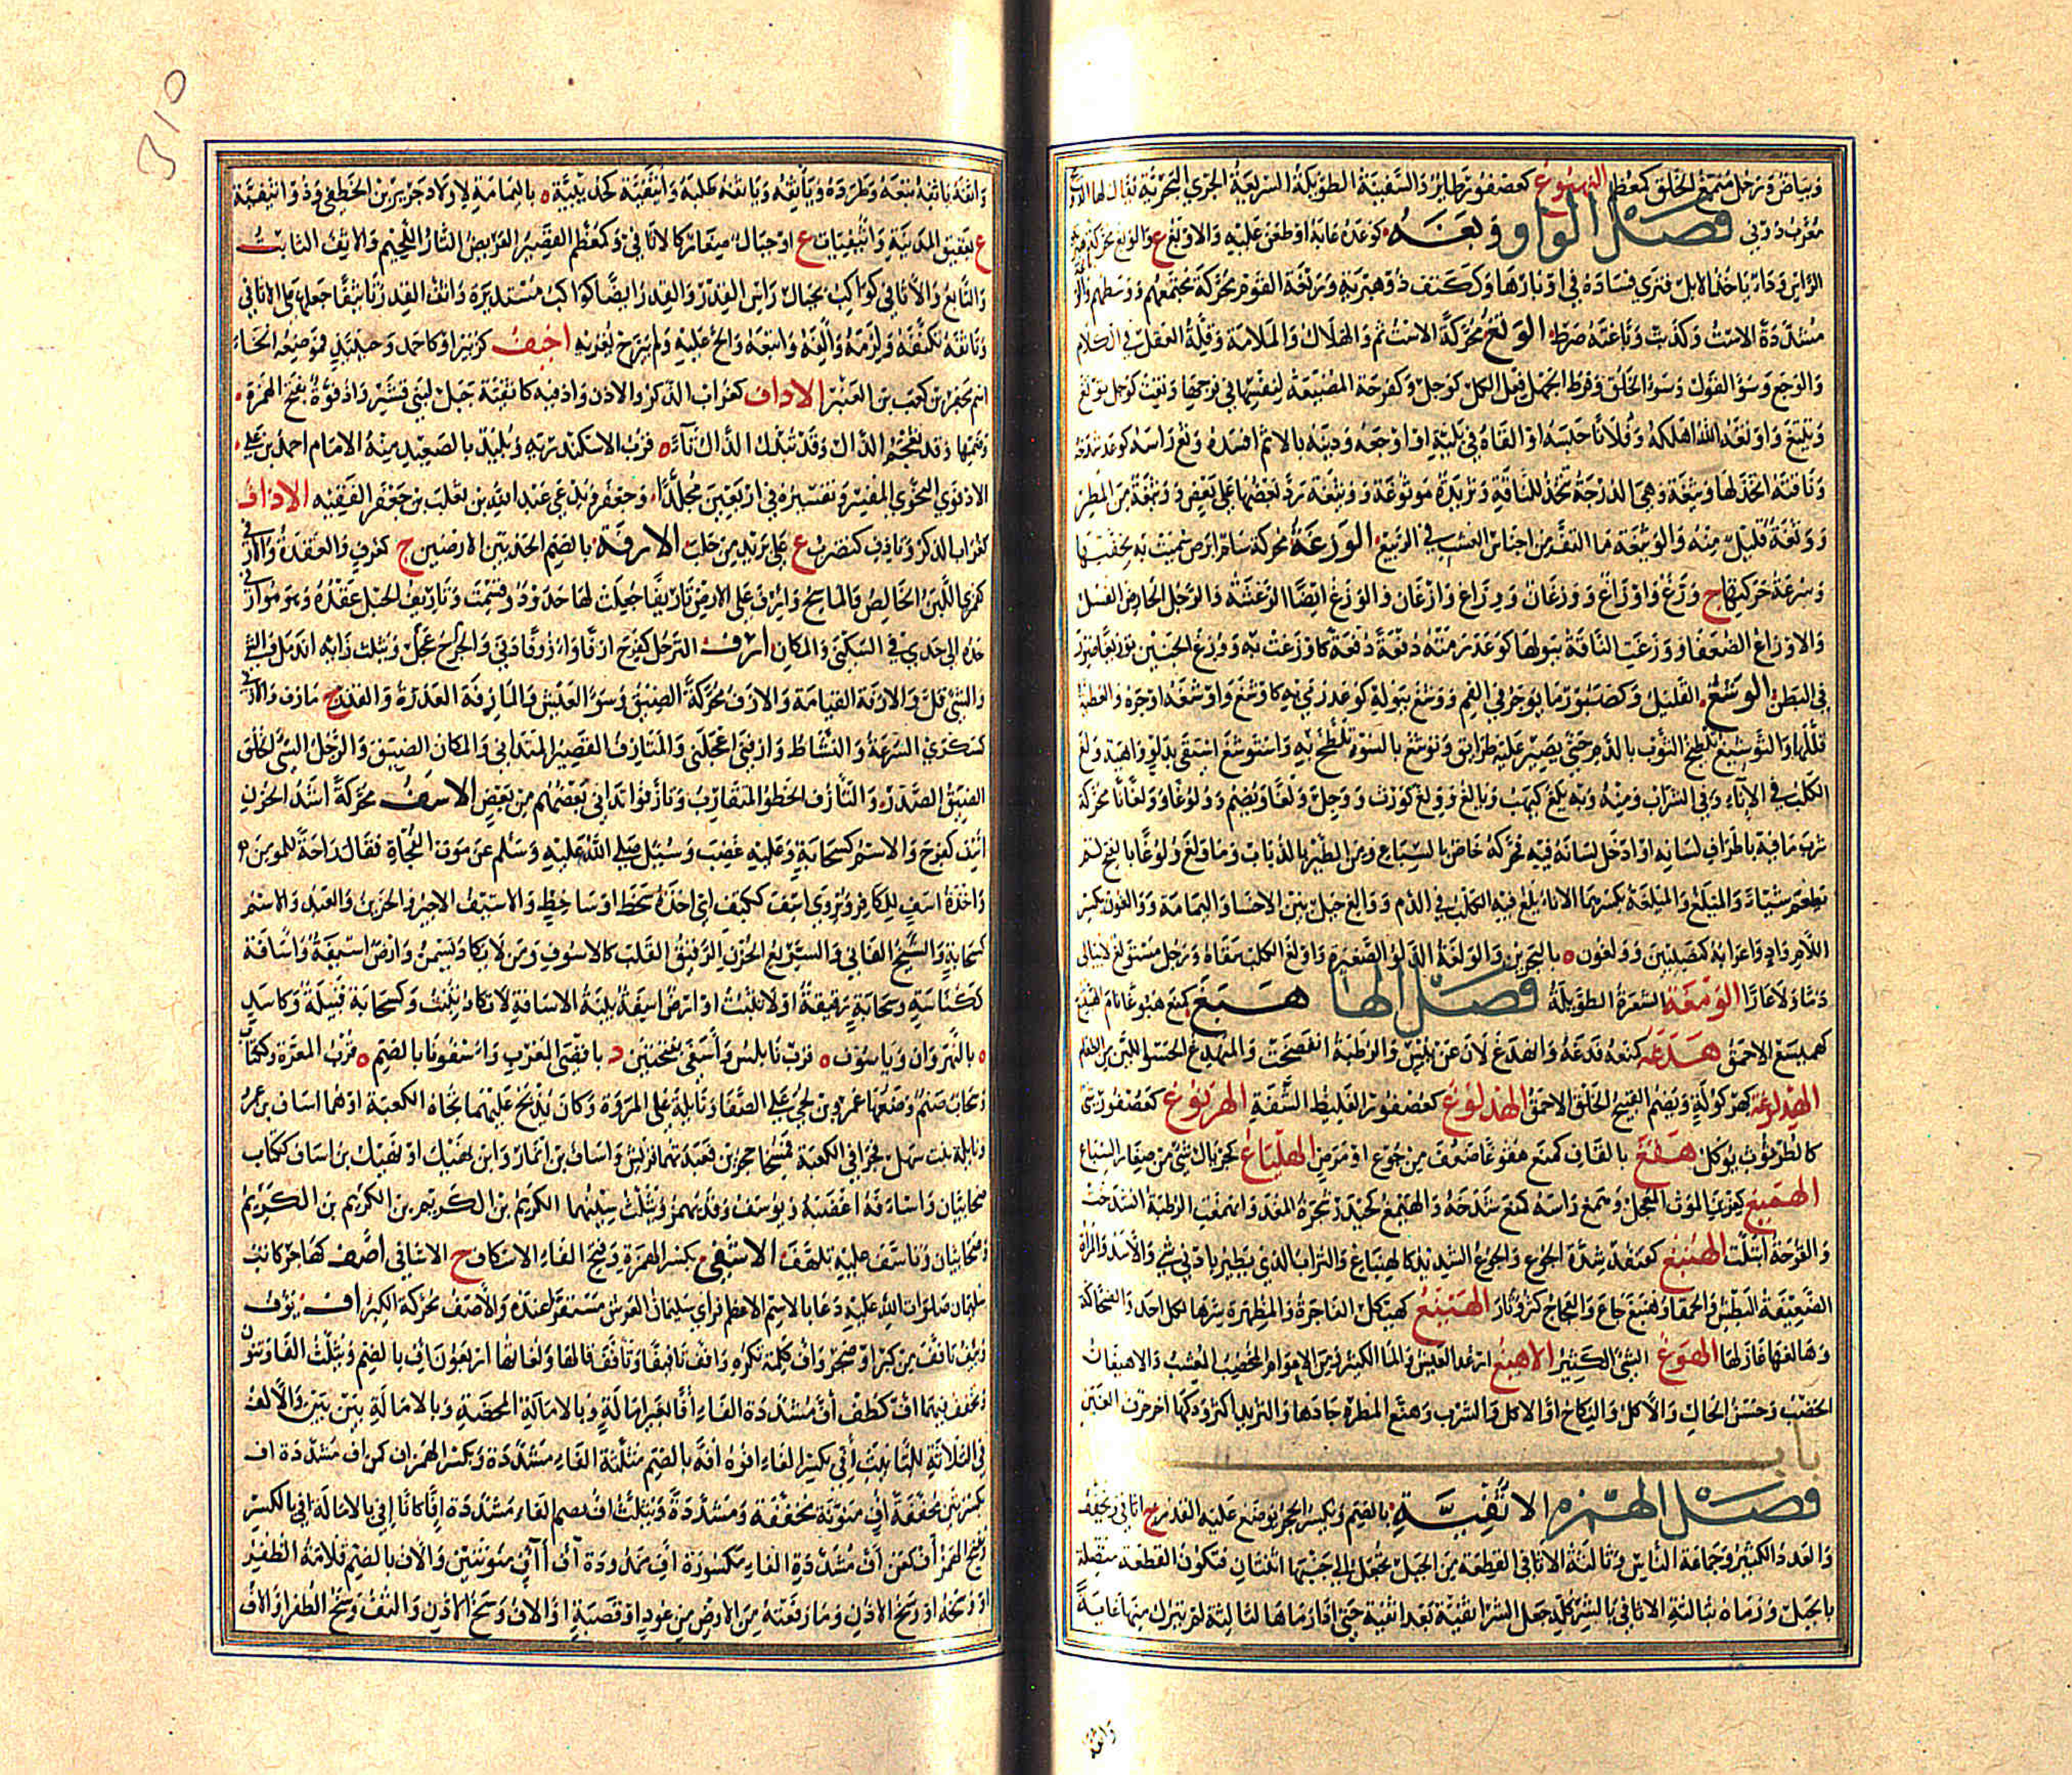 وبياض ورجل منمغ الخلق كمعظم النهبوغ كعصفور طائر والسفينة الطويلة السريعة الجري البحرية يقال لها الدونيج
معرب دوني فصل الواو وبغه كوعده عابه او طعن عليه والاوبغ ع والوبغ محركة هبرية
الراس وداء ياخذ الابل فترى فساده في اوبارها وككتف ذو هبرية ووبغة القوم محركة مجتمعهم ووسطهم
مشددة الاست وكذبت وباغته ضرط الوتغ محركة الاثم والهلاك والملامة وقلة العقل في الكلام
والوجع وسوء القول وسوء الخلق وفرط الجهل فعل الكل كوجل وكفرحة المضيعة لنفسها في فرجها وتغت كوجل يوتغ
وتيتغ واوتغه الله اهلكه وفلانا حبسه او القاه في بلية او اوجعه ودينه بالاثم افسده وثغ راسه كوعد شدخه
وناقته اتخذ لها وثيغة وهي الدرجة تتخذ للناقة وثريدة موثوغة ووثيغة رد بعضها على بعض ووثيغة من المطر
ووثغة قليل منه والوثيغة ما التف من اجناس العشب في الربيع الوزغة محركة سام ابرص سميت به لخفتها
وسرعة حركتها ج وزغ واوزاغ ووزغان ووزاغ وازغان والوزغ ايضا الرعشة والرجل الحارض الفسل
والاوزاغ الضعفاء ووزغت الناقة ببولها كوعد رمته دفعة دفعة كاوزغت به ووزغ الجنين توزيغا صور
في البطن الوشغ القليل وكصبور ما يوجر في الفم ووشغ ببوله كوعد رمى به كاوشغ واوشغه اوجره والعطية
قللها والتوشيغ تلطيخ الثوب بالدم حتى يصير عليه طرايق وتوشغ بالسوء تلطخ به واستوشغ استقى بدلو واهية ولغ
الكلب في الاناء وفي الشراب ومنه وبه يلغ كيهب ويالغ وولغ كورث ووجل ولغا ويضم وولوغا وولغانا محركة
شرب ما فيه باطراف لسانه او ادخل لسانه فيه فحركه خاص بالسباع ومن الطير بالذباب وما ولغ ولوغا بالفتح لم
يطعم شيئا والميلغ والميلغة بكسرهما الاناء يلغ فيه الكلب في الدم ووالغ جبل بين الاحساء واليمامة ووالغون بكسر
اللام واد واعرابه كنصيبين وولغون ه بالبحرين والولغة الدلو الصغيرة واولغ الكلب سقاه ورجل مستولغ لا يبالي
ذما ولا عارا الومغة الشعرة الطويلة فصل الها هبغ كمنع هبوغا نام الهبيغ
كهميسع الاحمق هدغه كمنعه فدغه وانهدغ لان عن يبس والرطبة انفضخت والمنهدغ الحسو اللين من الطعام
الهدلوغة كهركولة ويضم القبيح الخلق الاحمق الهذلوغ كعصفور الغليظ الشفة الهرنوغ كعصفور شئ
كالطرثوث يؤكل هفغ بالقاف كمنع هفوغا ضعف من جوع او مرض الهلياغ كجريال شئ من صغار السباع
الهميغ كغرين الموت المعجل وهمغ راسه كمنع شدخه والهيمغ كحيدر شجرة المغد وانهمغت الرطبة انشدخت
والقرحة ابتلت الهنبغ كقنفذ شدة الجوع والجوع الشديد كالهنباغ والتراب الذي يطير بادنى شئ والاسد والمراة
الضعيفة البطش والحمقاء وهنبغ جاع والعجاج كثر وثار الهينغ كهيكل الفاجرة والمظهرة سرها لكل احد والضحاكة
وهانغها غازلها الهوغ الشئ الكثير الاهيغ ارغد العيش والماء الكثير ومن الاعوام المخصب المعشب والاهيغان
الخصب وحسن الحال والاكل والنكاح او الاكل والشرب وهيغ المطر جادها والثريد اكثر ودكها آخر حرف الغين
باب
فصل الهمزه الاثفية بالضم ويكسر الحجر يوضع عليه القدر ج اثافي ويخفف
والعدد الكثير وجماعة الناس وثالثة الاثافي القطعة من الجبل يجعل الى جنبها اثنتان فتكون القطعة متصلة
بالجبل ورماه بثالثة الاثافي بالشر كله جعل الشر اثفية بعد اثفية حتى اذا رماها لثالثة لم يترك منها غاية
واثفه
٥١٥
واثفه ياثفه تبعه وطرده وياثفه وياثفه طلبه واثيفية كحديبية ه باليمامة لاولاد جرير بن الخطفى وذو اثيفية
ع بعقيق المدينة واثيفيات ع او جبال صغائر كالاثافي وكمعظم القصير العريض التار اللحيم والاثف الثابت
والتابع والاثافي كواكب بحيال راس القدر والقدر ايضا كواكب مستديرة واثف القدر تاثيفا جعلها على الاثافي
وتاثفه تكنفه ولزمه والفه واتبعه والح عليه ولم يبرح يغريه اجنف كزبير او كاحمد وحبليل فموضعه الخاء
اسم مجفر بن كعب بن العنبر الاداف كغراب الذكر والاذن وادفية كاثفية جبل لبني قشير وادفو بفتح الهمزة
وضمها وقد تعجم الدال وقد تبدل الدال تاء ه قرب الاسكندرية وبليد بالصعيد منه الامام احمد بن علي
الادفوي النحوي المفسر وتفسيره في اربعين مجلدا وجعفر بن ثعلب بن جعفر الفقيه الاذاف
كغراب الذكر وتاذف كتضرب ع على بريد من حلب الارفة بالضم الحد بين الارضين ج كغرف والعقدة والارفي
كقمري اللبن الخالص والماسح وارف على الارض تاريفا جعلت لها حدود وقسمت وتاريف الحبل عقده وهو موارفي
حده الى حدي في السكنى والمكان ازف الترحل كفرح ازفا وازوفا دنى والجرح عجل ويثلث زايه اندمل والشئ
والشئ قل والازفة القيامة والازف محركة الضيق وسوء العيش والمازفة العذرة والقذر ج مازف والازفى
كسكرى السرعة والنشاط وازفني اعجلني والمتازف القصير المتداني والمكان الضيق والرجل السيئ الخلق
الضيق الصدر والتازف الخطو المتقارب وتازفوا تداني بعضهم من بعض الاسف محركة اشد الحزن
اسف كفرح والاسم كسحابة وعليه غضب وسئل صلى الله عليه وسلم عن موت الفجاة فقال راحة للمومن
واخذة اسف للكافر ويروى اسف ككتف اي اخذة سخط او ساخط والاسيف الاجير والحزين والعبد والاسم
كسحابة والشيخ الفاني والسريع الحزن الرقيق القلب كالاسوف ومن لا يكاد يسمن وارض اسيفة واسافة
ككناسة وسحابة رقيقة او لا تنبت او ارض اسيفة بينة الاسافة لا تكاد تنبت وكسحابة قبيلة وكاسد
ه بالنهروان وياسوف ه قرب نابلس واسفى بفتحتين د باقصى المغرب واسفونا بالضم ه قرب المعرة وككتاب
وسحاب صنم وضعها عمرو بن لحي على الصفا ونايلة على المروة وكان يذبح عليهما تجاه الكعبة او هما اساف بن عمرو
ونايلة بنت سهل فجرا في الكعبة فمسخا حجرين فعبدتهما قريش واساف بن انمار وابن نهيك او نهيك بن اساف ككتاب
صحابيان واسافه اغضبه ويوسف وقد يهمز ويثلث سينهما الكريم بن الكريم بن الكريم بن الكريم
وصحابيان وتاسف عليه تلهف الاشفى بكسر الهمزة وفتح الفاء الاسكاف ج الاشافي اصف كهاجر كاتب
سليمان صلوات الله عليه دعا بالاسم الاعظم فراى سليمان العرش مستقرا عنده والاصف محركة الكبر اف يؤف
ويئف تافف من كرب او ضجر واف كلمة تكره وافف تافيفا وتافف قالها ولغاتها اربعون اف بالضم وتثلث الفاء وتنون
وتخفف فيهما اف كطف اف مشددة الفاء افا بغير امالة وبالامالة المحضة وبالامالة بين بين والالف
في الثلاثة للتانيث افي بكسر الفاء افوه افه بالضم مثلثة الفاء مشددة وبكسر الهمزة اف كمن اف مشددة اف
بكسرتين مخففة اف منونة مخففة ومشددة وتثلث اف بضم الفاء مشددة افا كانا افي بالامالة افي بالكسر
وتفتح الهمز اف كمن اف مشددة الفاء مكسورة اف ممدودة آف آاف منونتين والاف بالضم قلامة الظفر
او وسخه او وسخ الاذن وما رفعته من الارض من عود او قصبة او الاف وسخ الاذن والتف وسخ الظفر او الاف